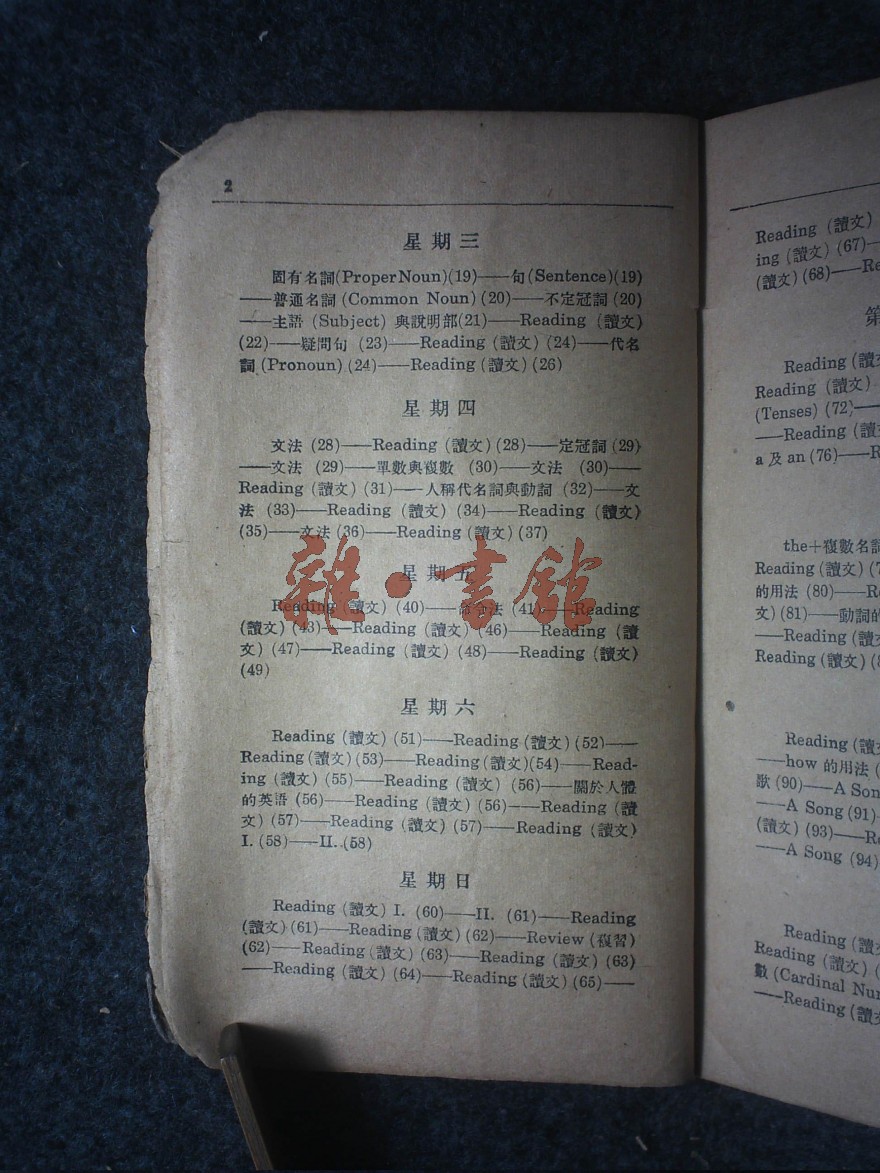 2
星期三
固有名詞(Proper Noun)(19)——句(Sentence)(19)
——普通名詞 (Common Noun) (20)——不定冠詞 (20)
——主語 (Subject) 與說明部(21)——Reading (讀文)
(22)——疑問句 (23)——Reading (讀文) (24)——代名
詞 (Pronoun) (24)——Reading (讀文) (26)
星期四
文法 (28)——Reading (讀文) (28)——定冠詞 (29)
——文法 (29)——單數與複數 (30)——文法 (30)——
Reading (讀文) (31)——人稱代名詞與動詞 (32)——文
法 (33)——Reading (讀文) (34)——Reading (讀文)
(35)——文法 (36)——Reading (讀文) (37)
星期五
Reading (讀文) (40)——命令法 (41)——Reading
(讀文) (43)——Reading (讀文) (46)——Reading (讀
文) (47)——Reading (讀文) (48)——Reading (讀文)
(49)
星期六
Reading (讀文) (51)——Reading (讀文) (52)——
Reading (讀文) (53)——Reading (讀文) (54)——Read-
ing (讀文) (55)——Reading (讀文) (56)——關於人體
的英語 (56)——Reading (讀文) (56)——Reading (讀
文) (57)——Reading (讀文) (57)——Reading (讀文)
I. (58)——II. (58)
星期日
Reading (讀文) I. (60)——II. (61)——Reading
(讀文) (61)——Reading (讀文) (62)——Review (複習)
(62)——Reading (讀文) (63)——Reading (讀文) (63)
——Reading (讀文) (64)——Reading (讀文) (65)——
雜·書館
Reading (讀文)
ing (讀文) (67)—
(讀文) (68)——Re
第
Reading (讀
Reading (讀文)
(Tenses) (72)—
——Reading (讀文
a 及 an (76)——R
the+複數名詞
Reading (讀文) (7
的用法 (80)——Re
文) (81)——動詞的
——Reading (讀文
Reading (讀文) (8
Reading (讀文
——how 的用法 (
歌 (90)——A Son
——A Song (91)
(讀文) (93)——Re
——A Song (94)
Reading (讀文
Reading (讀文) (
數 (Cardinal Num
——Reading (讀文